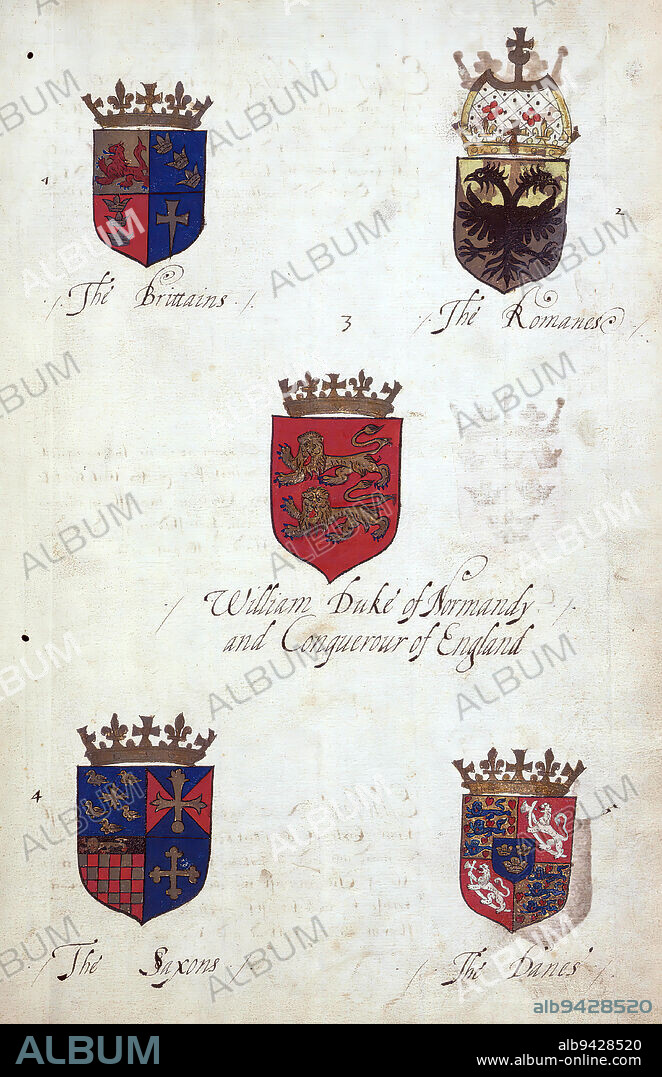 1
The Brittains
2
The Romanes
3
William Duke of Normandy
and Conquerour of England
4
The Saxons
The Danes
ALBUM
alb9428520
ALBUM
alb9428520
www.album-online.com